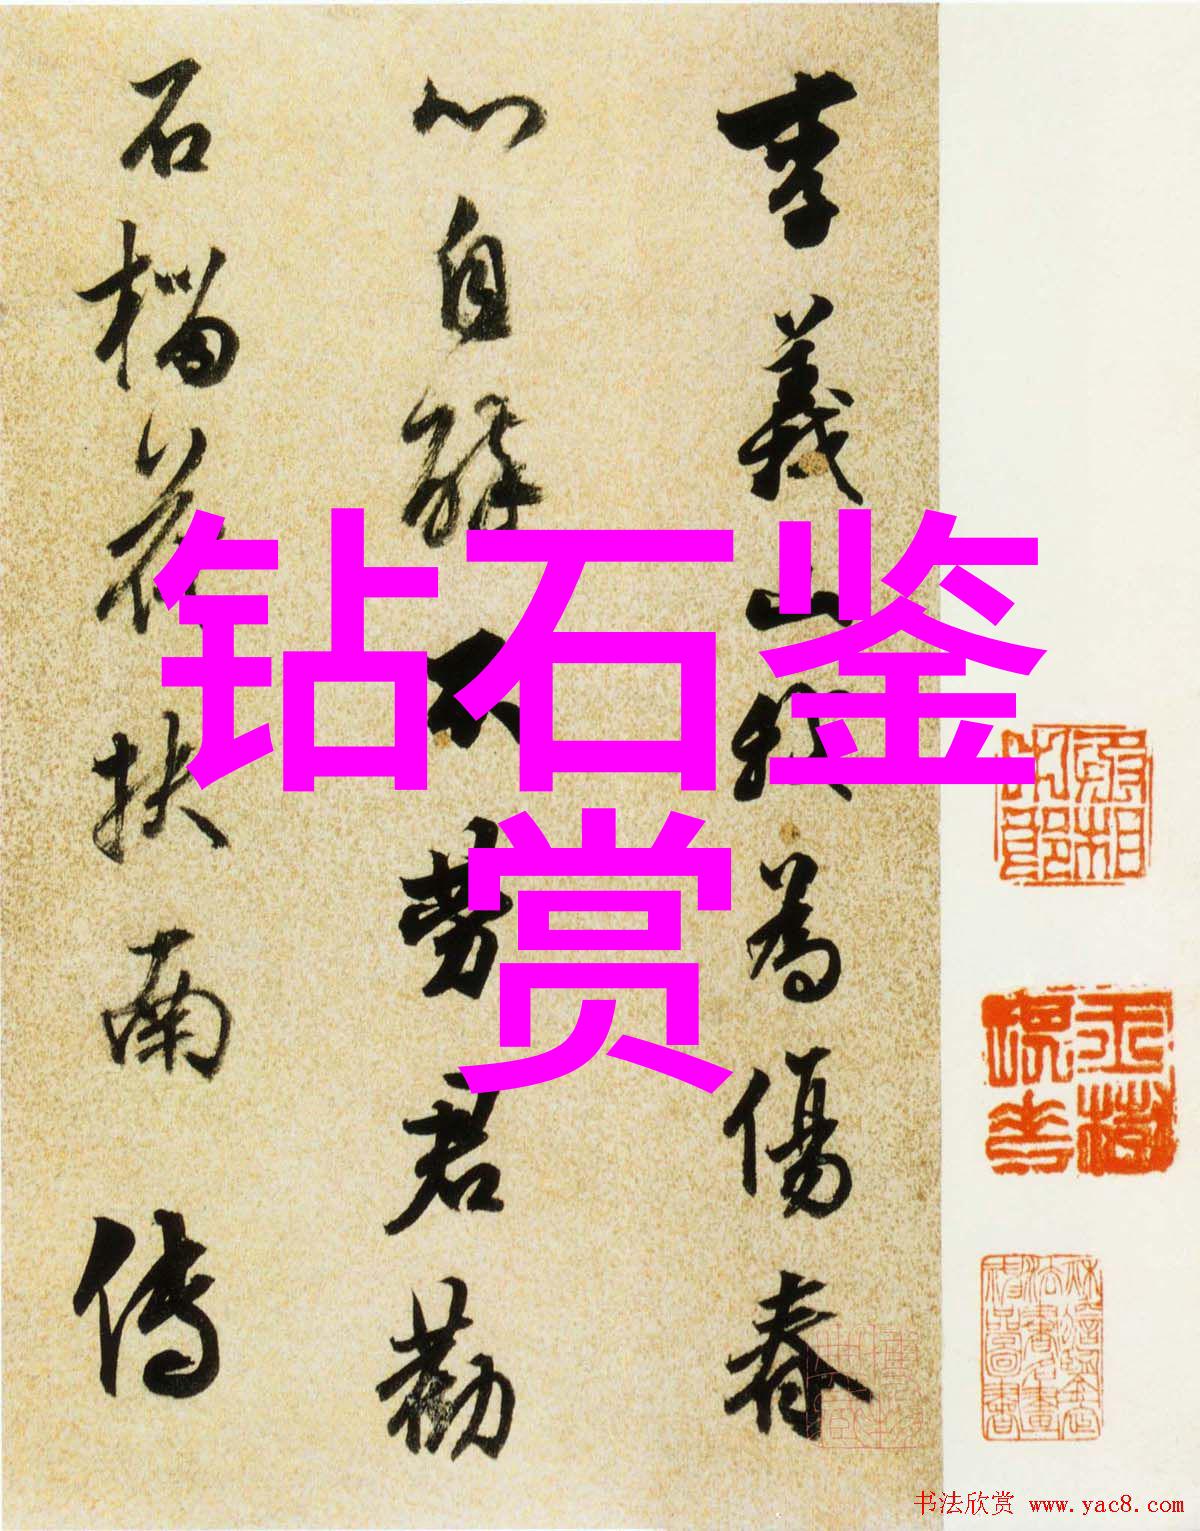 钻石鉴
赏
李義山為傷春
心自醉不勞君勸
石榴花扶南傳
书法欣赏 www.yac8.com